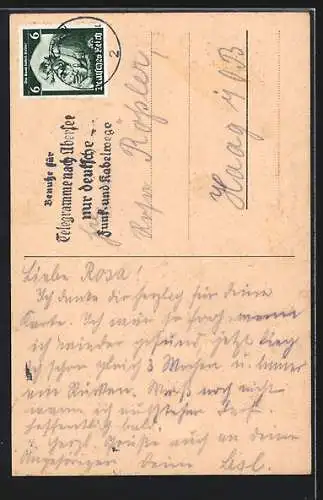 6 6
Deutsches Reich
2
Benutze für
Telegramme nach Übersee
nur deutsche
Funk- und Kabelwege
Rosa Rößler
Haag i/OB
Liebe Rosa!
Ich danke dir herzlig für deine
Karte. Ich wär so froh, wenn
ich wieder gesund, jetzt lieg
ich schon gleich 3 Wochen u. immer
am Rücken. Weiß noch nicht
wann ich aufstehen darf.
hoffentlich bald.
Herzl. Grüße auch an deine
Angehörigen Deine Liesl.